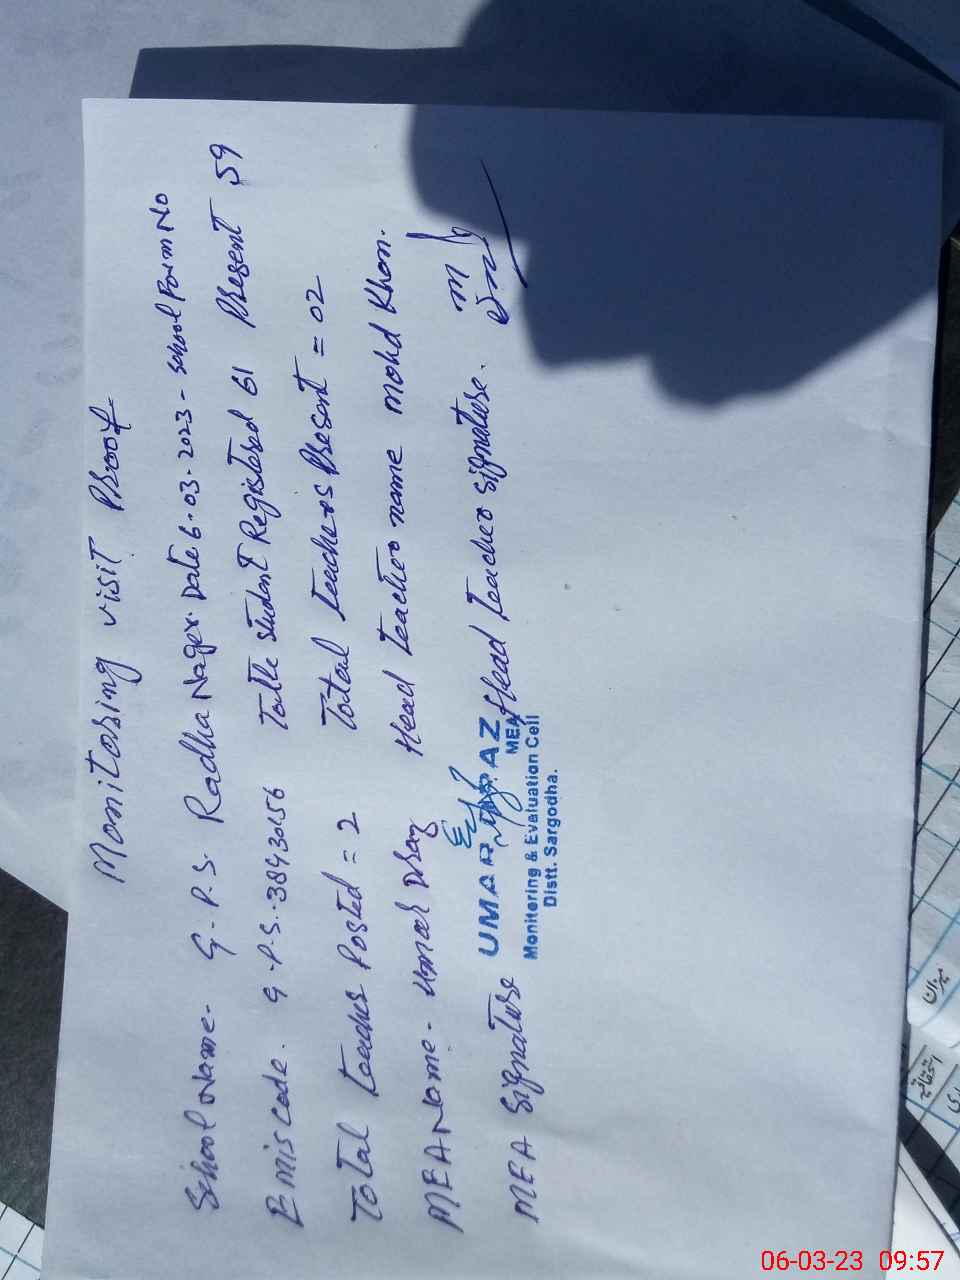 Monitoring visit Proof
School Name. G.P.S. Radha Nager. Date 6.03.2023 - School Form No
Emis code. G.P.S..38430156 Totle Student Registered 61 Present 59
Total teacher Posted = 2 Total teachers Present = 02
MEA Name. Umar Draz Head teacher name Mohd Khan.
MEA Signature Head teacher Signature.
UMAR DARAZ
MEA
Monitoring & Evaluation Cell
Distt. Sargodha.
06-03-23 09:57